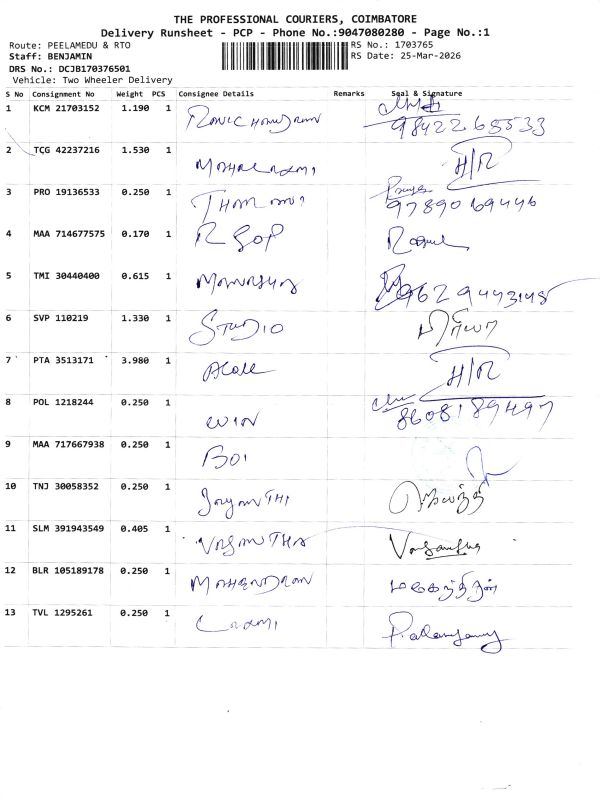 THE PROFESSIONAL COURIERS, COIMBATORE
Delivery Runsheet - PCP - Phone No.:9047080280 - Page No.:1
Route: PEELAMEDU & RTO RS No.: 1703765
Staff: BENJAMIN RS Date: 25-Mar-2026
DRS No.: DCJB170376501
Vehicle: Two Wheeler Delivery
S No Consignment No Weight PCS Consignee Details Remarks Seal & Signature
1 KCM 21703152 1.190 1 98422 65533
2 TCG 42237216 1.530 1 H/R
3 PRO 19136533 0.250 1 97890 69446
4 MAA 714677575 0.170 1 R GOP
5 TMI 30440400 0.615 1
6 SVP 110219 1.330 1 STUDIO பிரியா
7 PTA 3513171 3.980 1 H/R
8 POL 1218244 0.250 1 WIN 8608189497
9 MAA 717667938 0.250 1 BOI
10 TNJ 30058352 0.250 1 JAYANTHI ஜெயந்தி
11 SLM 391943549 0.405 1 VASANTHA Vasantha
12 BLR 105189178 0.250 1 MAHENDRAN மகேந்திரன்
13 TVL 1295261 0.250 1 LAXMI